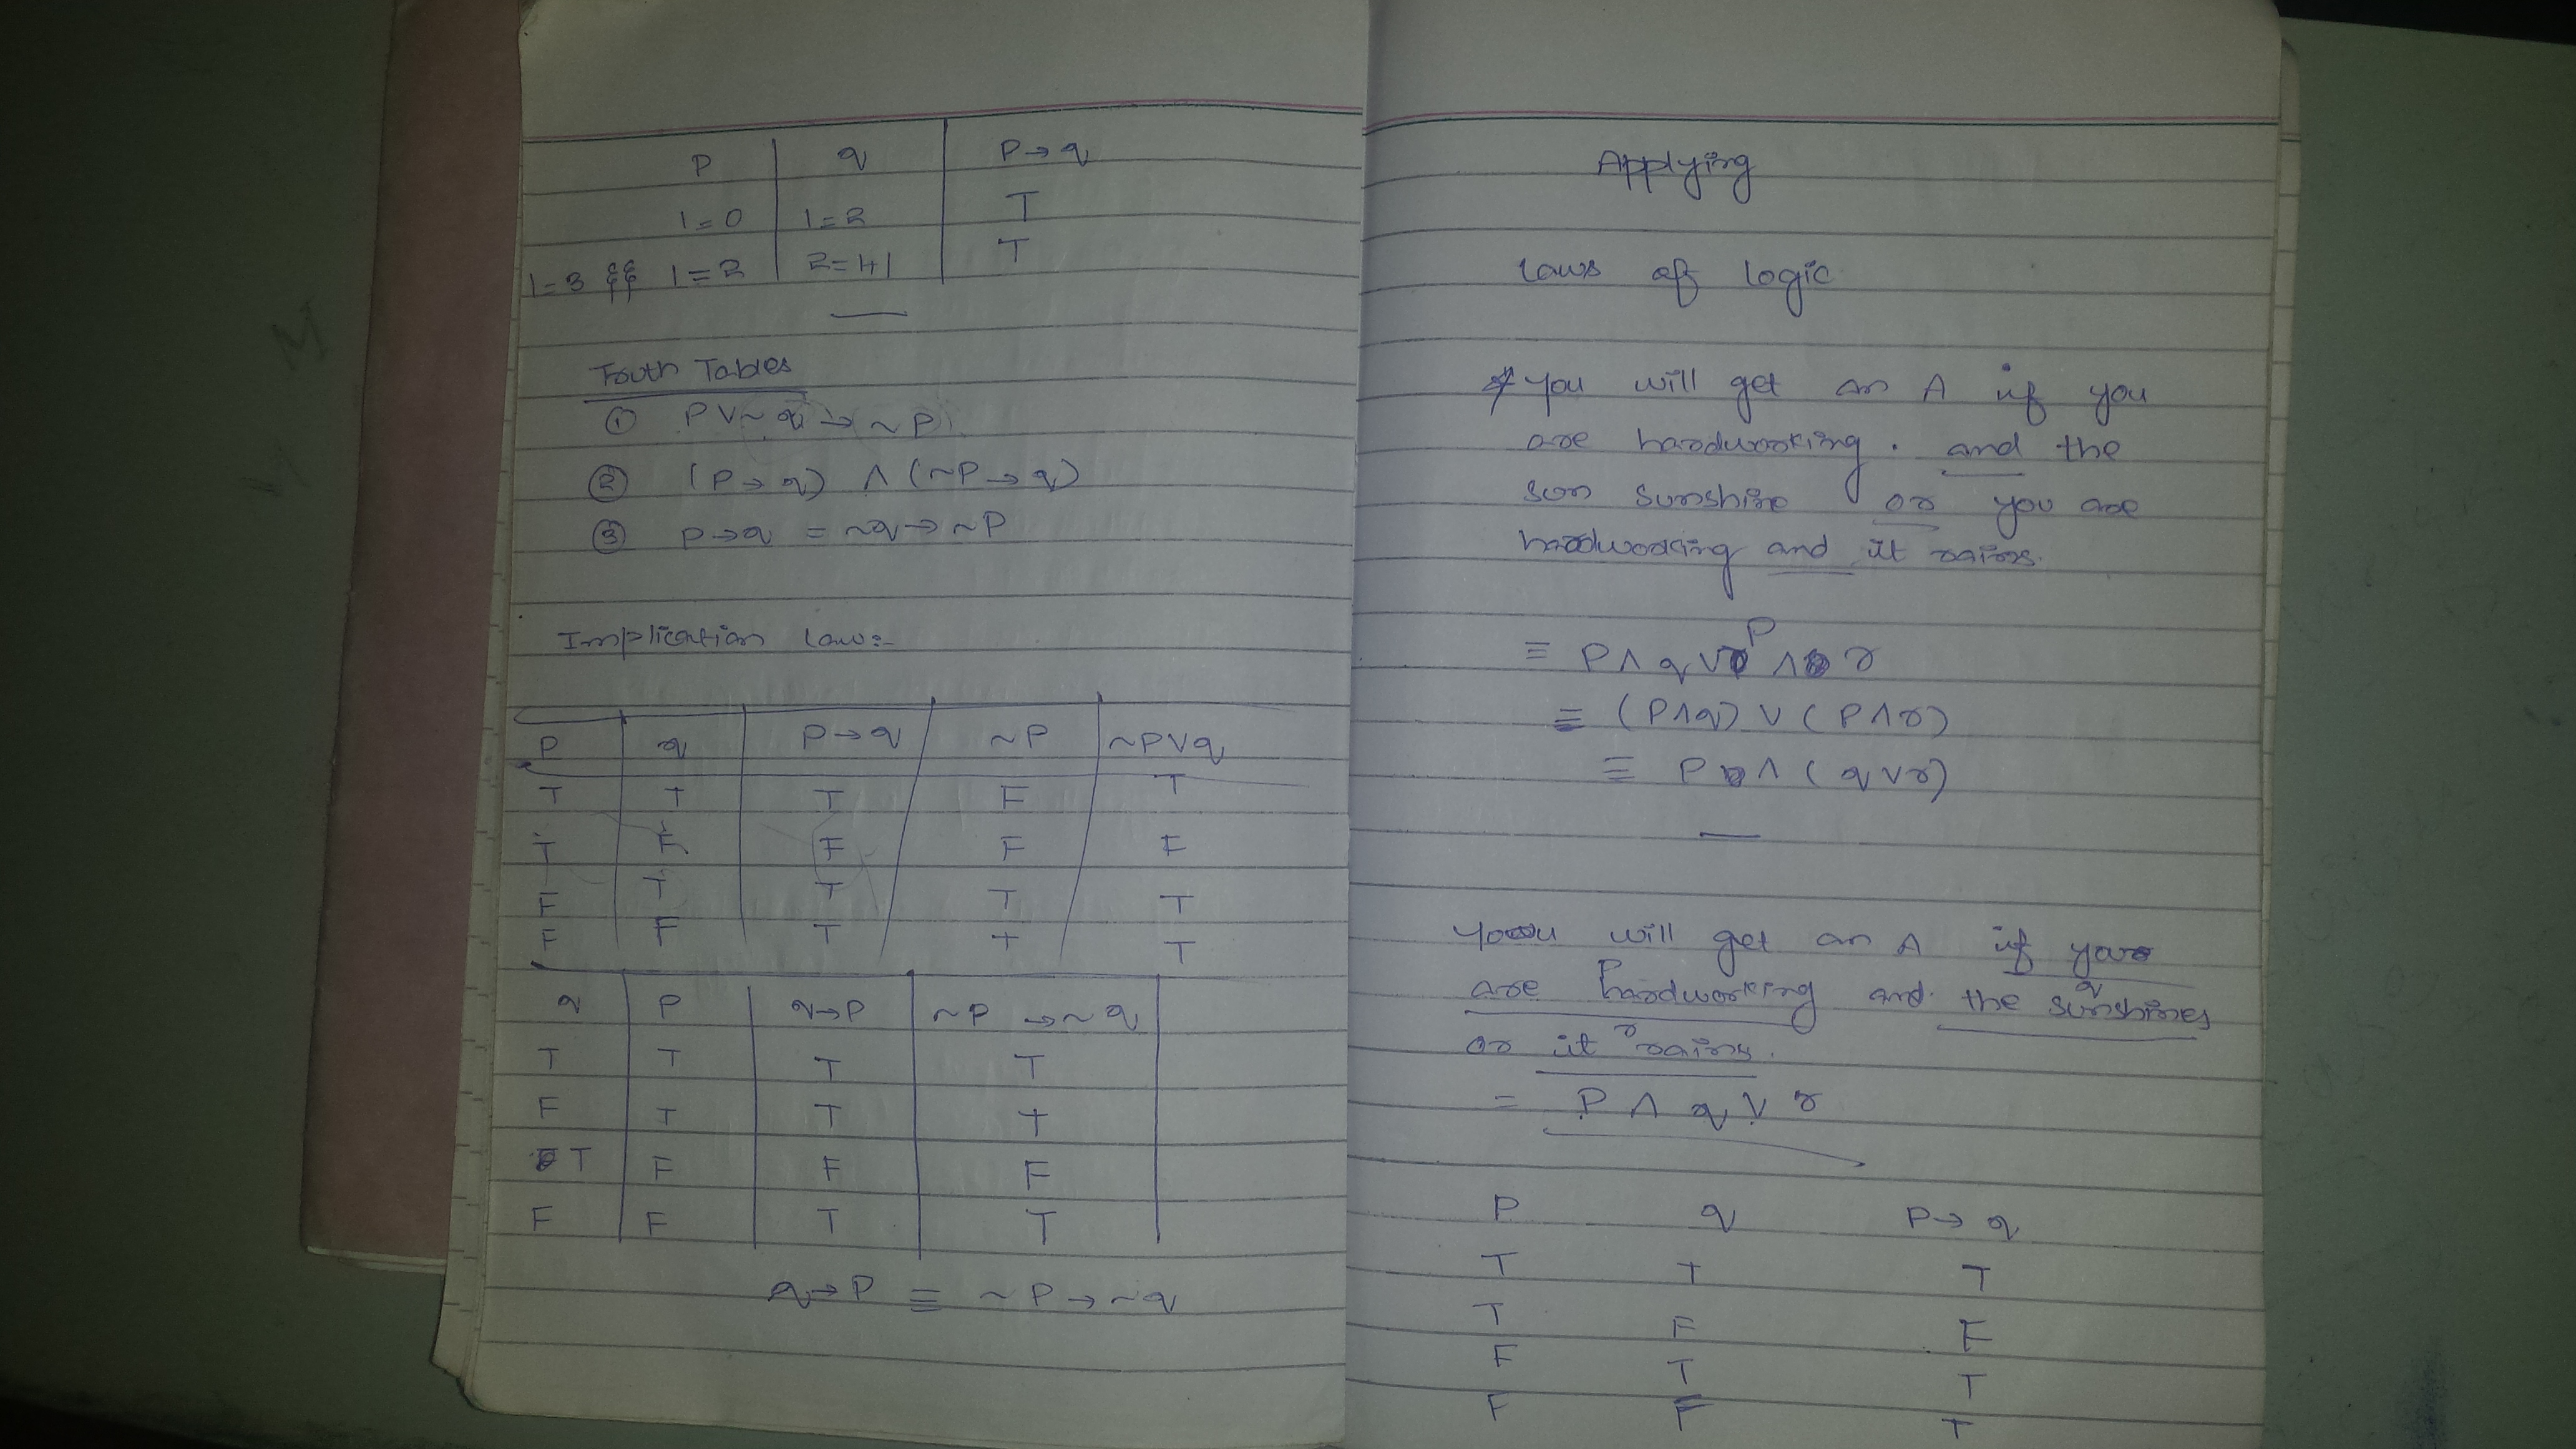 P q P→q
1=0 1=2 T
1=3 && 1=2 2=41 T
Truth Tables
① P V ~ q → ~ P
② (P → q) ∧ (~P → q)
③ P→q = ~q→ ~P
Implication law:-
P q P→q ~P ~P∨q
T T T F T
T F F F F
F T T T T
F F T T T
q P q→P ~P →~q
T T T T
F T T T
T F F F
F F T T
q→P ≡ ~P→~q
Applying
Laws of logic
* you will get an A if you
are hardworking. and the
sun sunshine or you are
hardworking and it rains.
≡ P∧q∨P∧r
≡ (P∧q) ∨ (P∧r)
≡ P∧(q∨r)
you will get an A if you
P q
are hardworking and the sunshines
r
or it rains.
= P ∧ q ∨ r
P q P→q
T T T
T F F
F T T
F F T